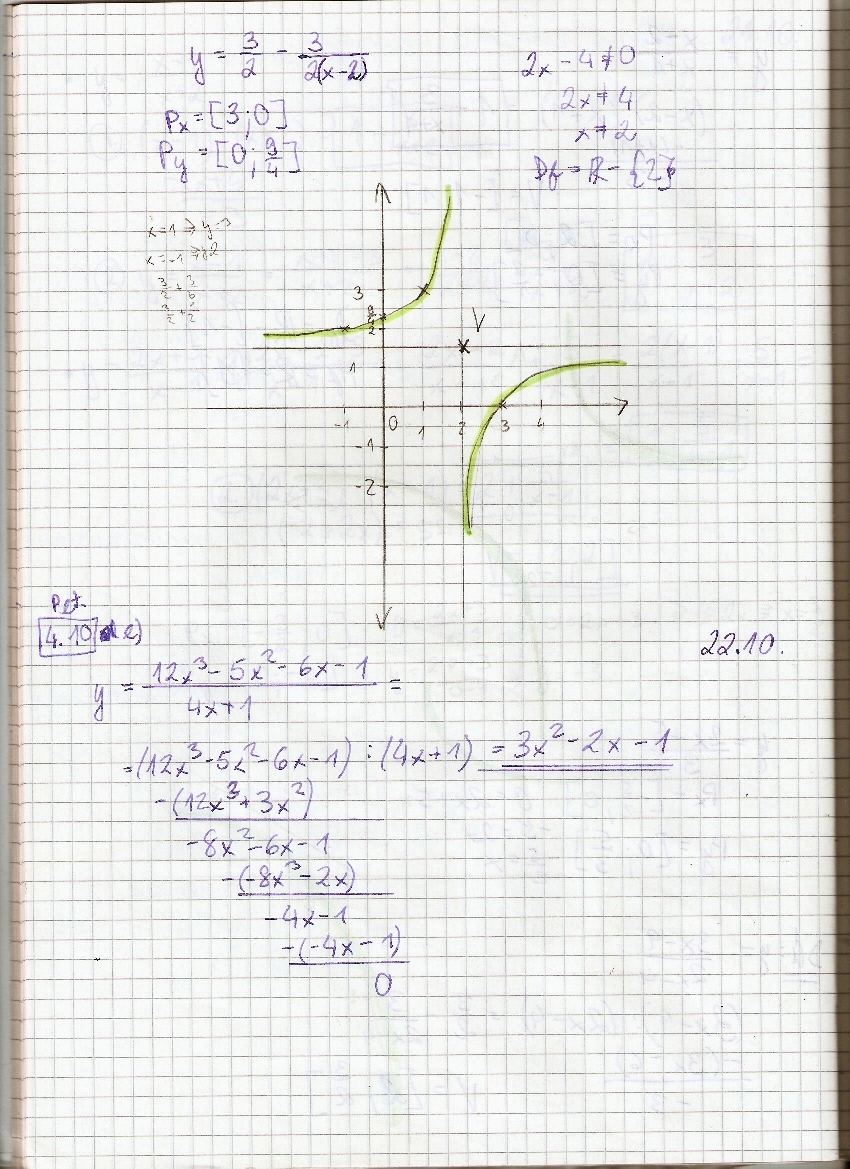 y = 3/2 - 3/(2(x-2))
2x - 4 ≠ 0
2x ≠ 4
x ≠ 2
Px = [3;0]
Py = [0; 9/4]
Df = R - {2}
x=1 ⇒ y=3
3
9/4
2
V
1
-1 0 1 2 3 4
-1
-2
4.10 e)
22.10.
y = (12x³ - 5x² - 6x - 1)/(4x+1) =
= (12x³ - 5x² - 6x - 1) : (4x+1) = 3x² - 2x - 1
-(12x³ + 3x²)
-8x² - 6x - 1
-(-8x³ - 2x)
-4x - 1
-(-4x - 1)
0